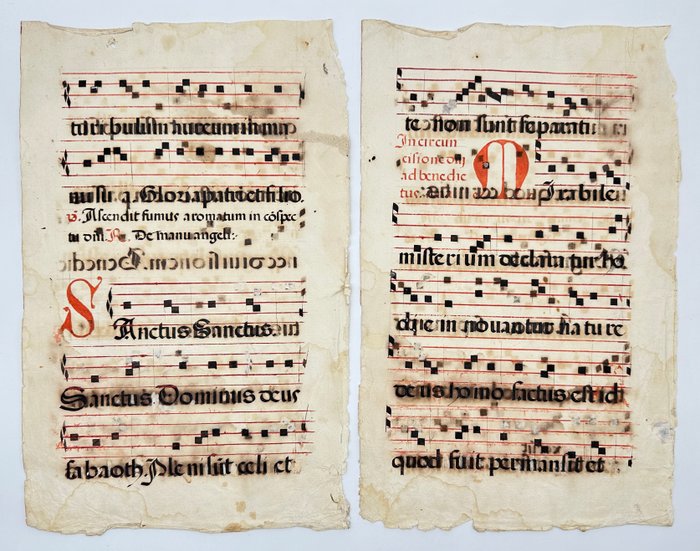 turibulum aureum in manu
su. q. Gloria patri et filio.
V. Ascendit fumus aromatum in cõspe
tu dñi. R. De manu angeli:
S Anctus Sanctus.
Sanctus Dominus deus
sabaoth. Ple ni sũt celi et
te non sunt separati
In circun
cisione dñi
ad benedic
tus.
M Irabile
misterium declaratur ho
die in novantur nature
deus homo factus est id
quod fuit permansit et